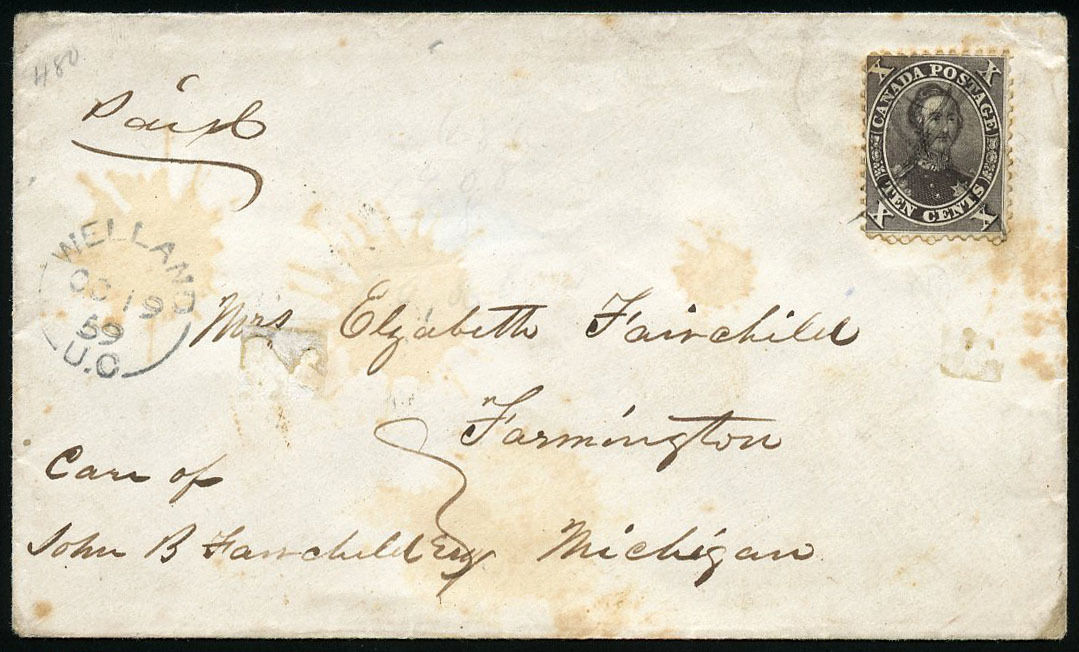 480
Paid
X X
CANADA POSTAGE
TEN CENTS
X X
WELLAND
OC 19
59
U.C
Mrs Elizabeth Fairchild
Farmington
Care of
John B Fairchild Esq Michigan